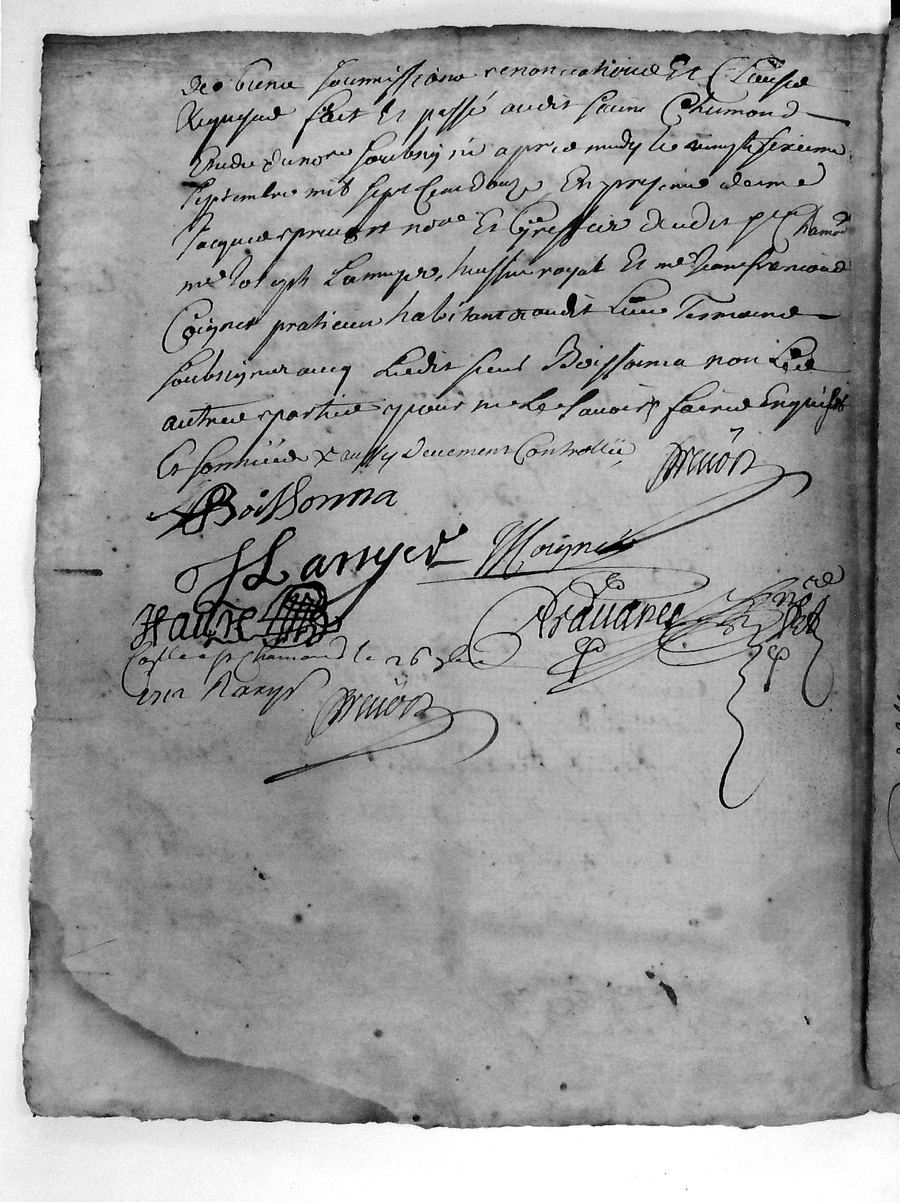 de biens soumissions renonciations Et Clauses
Requises fait Et passé audit Saint Chamond
Etude du nore soubsigné apres midy le vingt sixieme
septembre mil sept Cent douze En presence de me
Jacques prevost nore Et Greffier dudit St Chamond
me Joseph Lamyer huissier royal Et me Jean francois
Coignet praticien habitant audit Lieu Tesmoins
soubsignez avec Ledit sieur Boissonna non Les
autres parties pour ne le scavoir faire Enquis
Et sommées devement Controllé prevost
Boissonna
JLamyer Coignet
faure Arduane nore
Conlle a St Chamond le 26 7bre
1712 Raxys
prevost